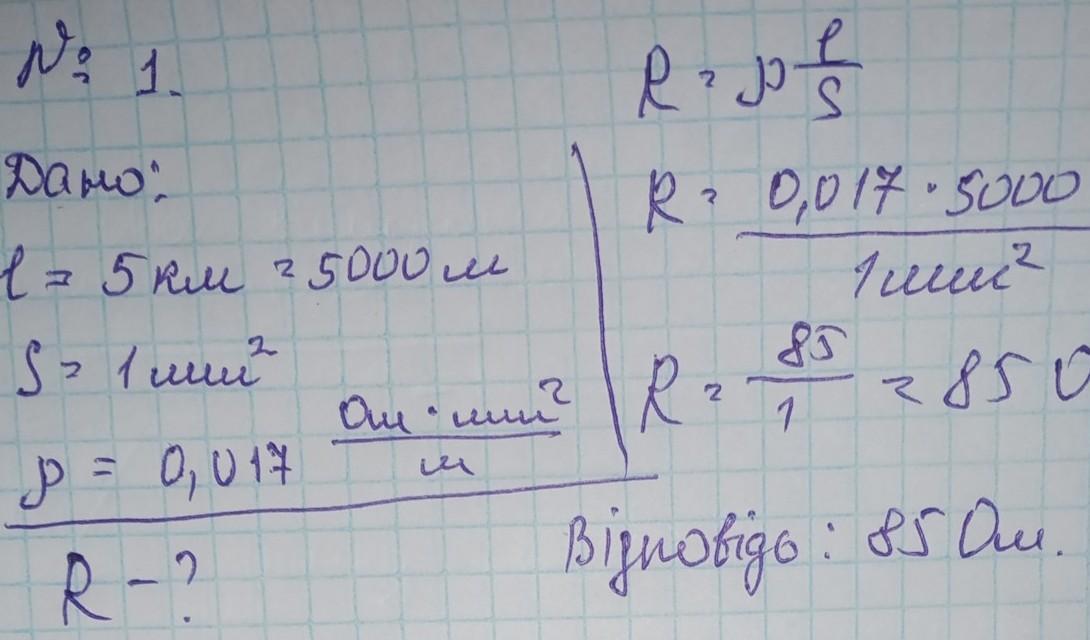 № 1.
Дано:
l = 5 км = 5000 м
S = 1 мм²
ρ = 0,017 Ом · мм² / м
R – ?
R = ρ l / S
R = 0,017 · 5000 / 1 мм²
R = 85 / 1 = 85 О
Відповідь: 85 Ом.